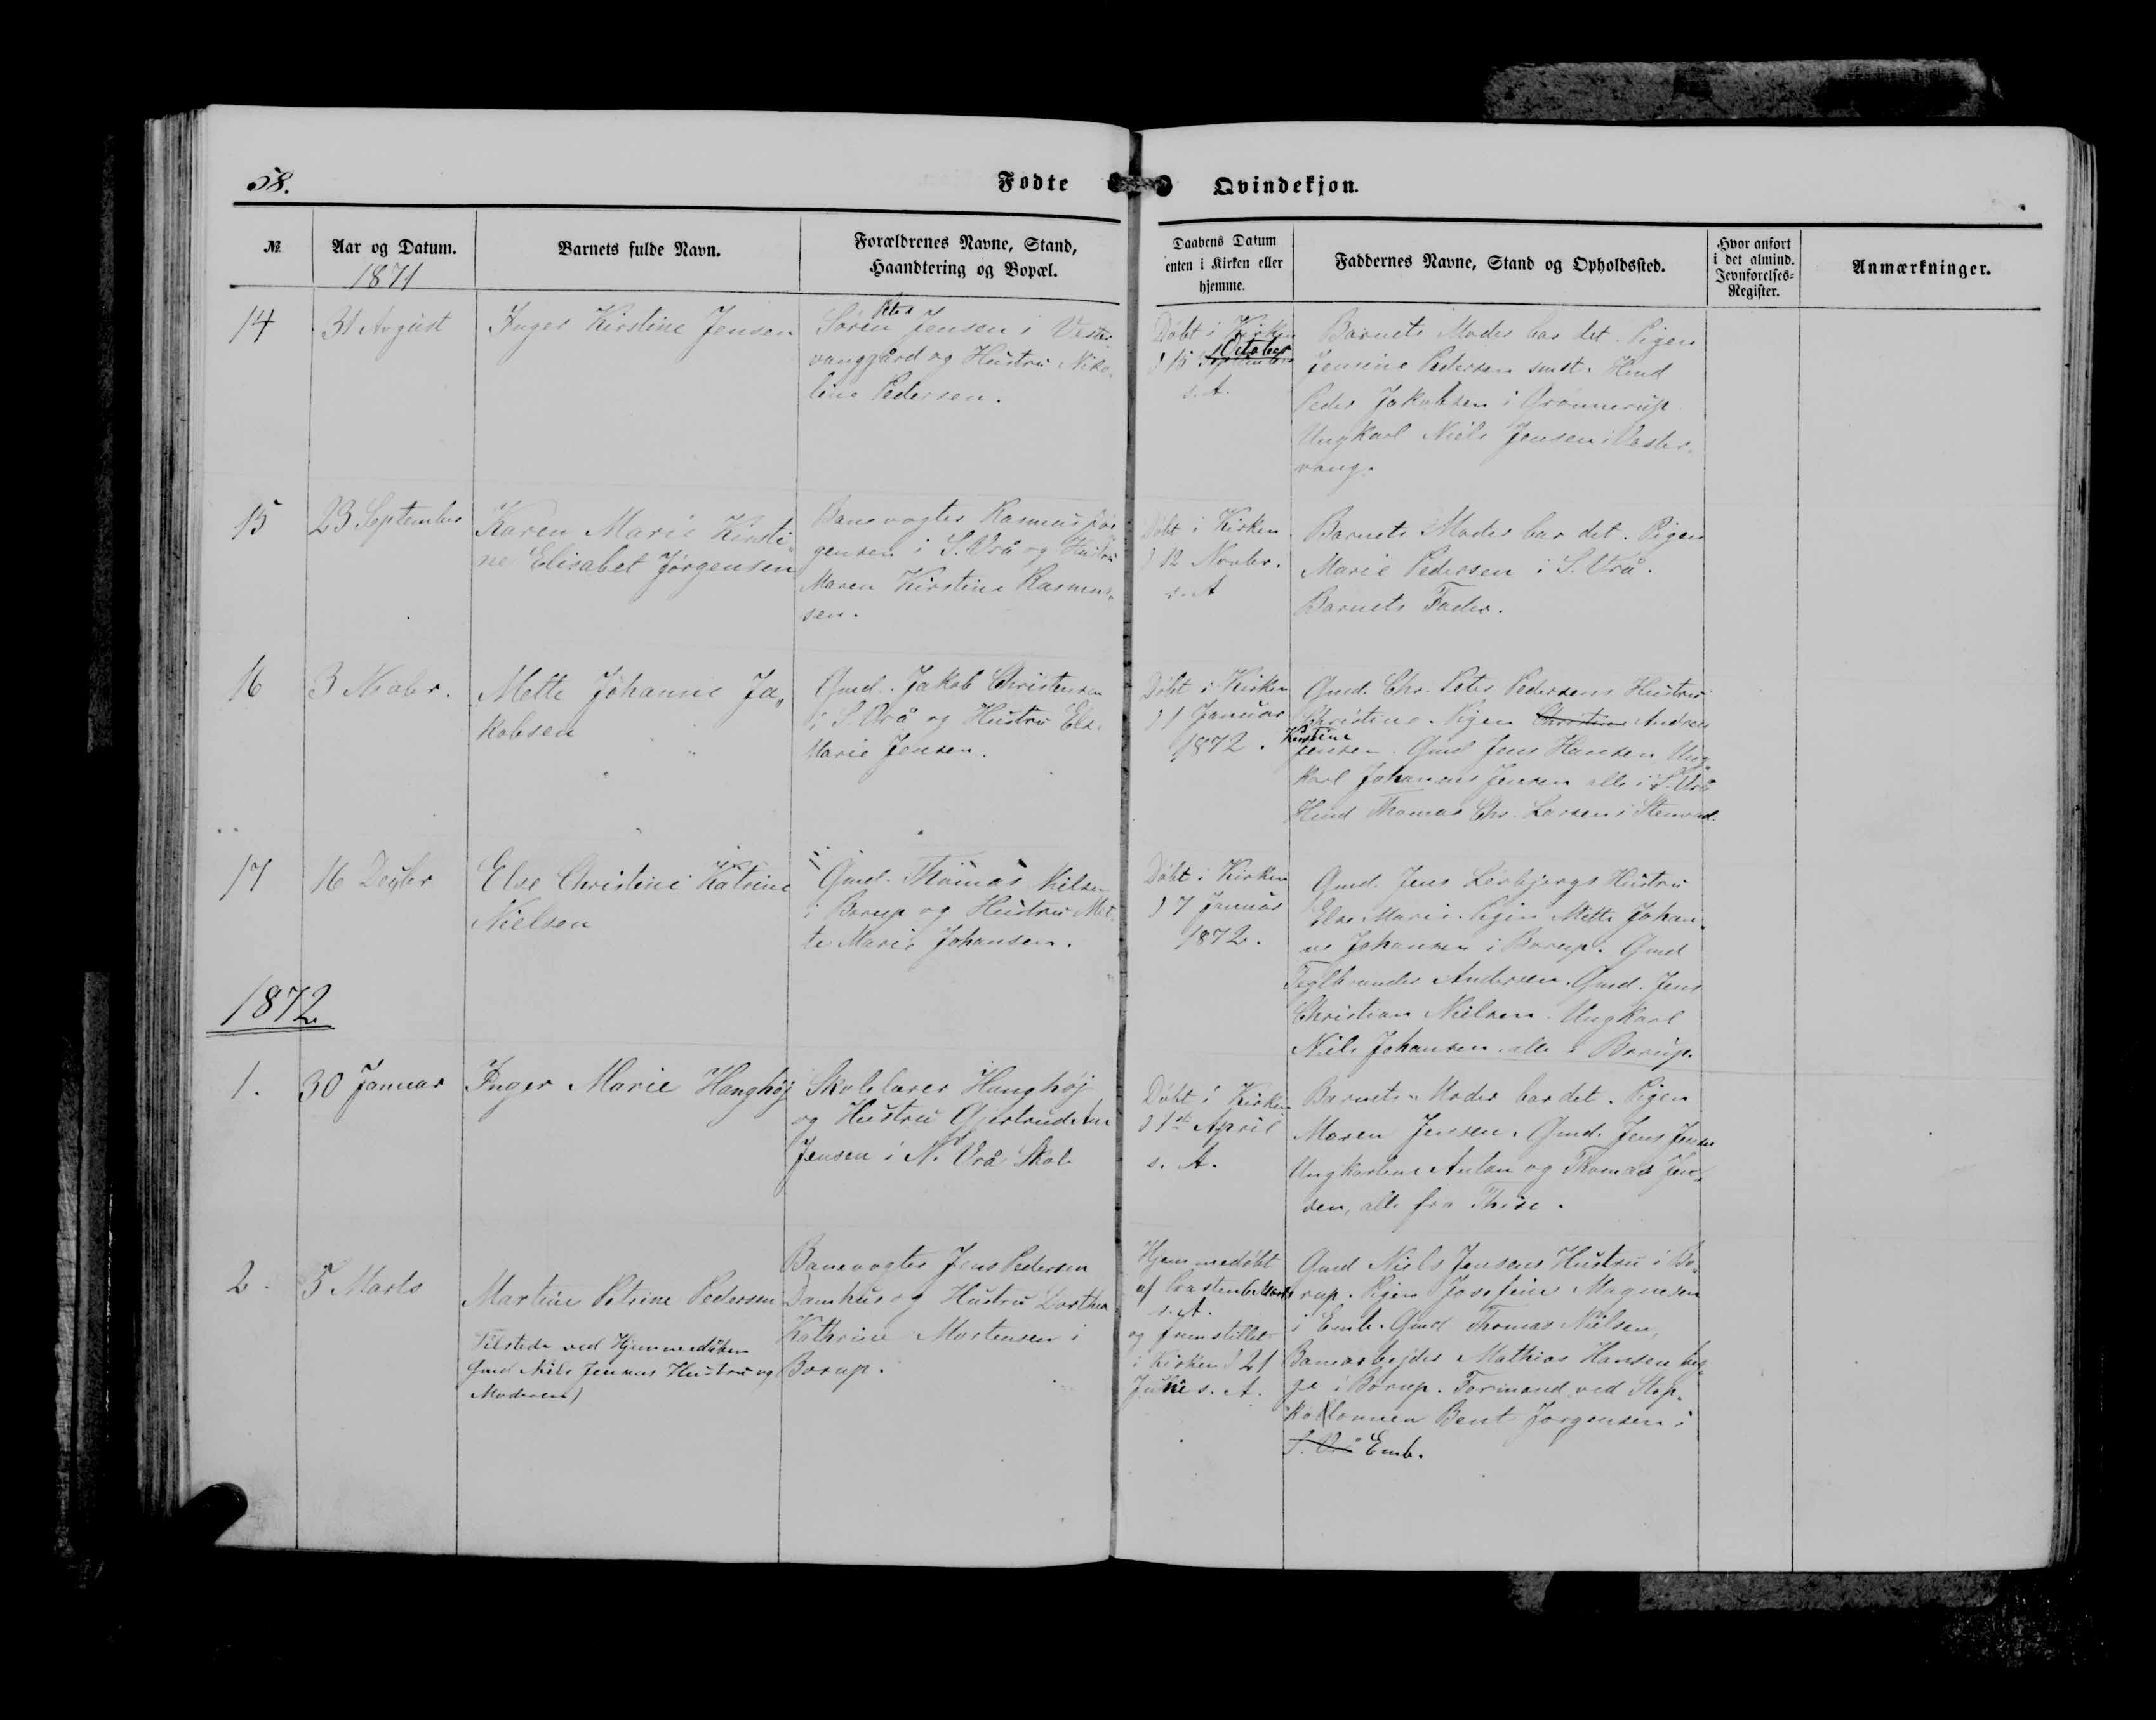 58.
Fødte
Qvindekjøn.
№
Aar og Datum.
1871
Barnets fulde Navn.
Forældrenes Navne, Stand,
Haandtering og Bopæl.
Daabens Datum
enten i Kirken eller
hjemme.
Faddernes Navne, Stand og Opholdssted.
Hvor anført
i det almind.
Jevnførelses-
Register.
Anmærkninger.
14
31 August
Inger Kirstine Jensen
Peter
Søren Jensen i Vester
vanggård og Hustru Niko-
line Pedersen.
Døbt i Kirken
October
d 15 September
s. A.
Barnets Moder bar det. Pigen
Jensine Pedersen smst. Hmd
Peder Jakobsen i Grønnerup
Ungkarl Niels Jensen i Vester-
vang.
15
23 September
Karen Marie Kirsti-
ne Elisabet Jørgensen
Banevogter Rasmus Jør
gensen i S. Vrå og Hustru
Maren Kirstine Rasmus-
sen.
Døbt i Kirken
d 12 Novbr.
s. A
Barnets Moder bar det. Pigen
Marie Pedersen i S. Vrå.
Barnets Fader.
16
3 Novbr.
Mette Johanne Ja-
kobsen
Gmd. Jakob Christensen
i S. Vrå og Hustru Else
Marie Jensen.
Døbt i Kirken
d 1 Januar
1872.
Gmd. Chr. Peter Pedersens Hustru
Christine. Pigen Christine Andrea
Kirstine
Jensen. Gmd Jens Hansen, Ung-
karl Johannes Jensen alle i S. Vrå
Hmd Thomas Chr. Larsen i Stenvad.
17
16 Decbr
Else Christine Katrine
Nielsen
Gmd. Thomas Nielsen
i Borup og Hustru Met-
te Marie Johansen.
Døbt i Kirken
d 7 Januar
1872.
Gmd. Jens Lerbjergs Hustru
Else Marie. Pigen Mette Johan-
ne Johansen i Borup. Gmd
Andersen. Gmd. Jens
Christian Nielsen. Ungkarl
Niels Johansen alle i Borup.
1872
1.
30 Januar
Inger Marie Hanghøj
Skolelærer Hanghøj
og Hustru Gjertrud An
Jensen i N. Vrå Skole
Døbt i Kirken
d 1st April
s. A.
Barnets Moder bar det. Pigen
Maren Jensen. Gmd. Jens Jensen
Ungkarlene Anton og Thomas Jen-
sen, alle fra Thise.
2.
5 Marts
Martine Petrine Pedersen
Tilstede ved Hjemmedåben
Gmd Niels Jensens Hustru og
Moderen)
Banevogter Jens Pedersen
Damhus og Hustru Dorthea
Kathrine Mortensen i
Borup.
Hjemmedøbt
af Præsten 6 Marts
s. A.
og fremstillet
i Kirken d 21
Juli s. A.
Gmd Niels Jensens Hustru i Bo-
rup. Pigen Josefine Magnesen
i Emb. Gmd Thomas Nielsen,
Banearbejder Mathias Hansen beg-
ge i Borup. Formand ved Stop-
kolonnen Bent Jørgensen i
S. Vrå Emb.